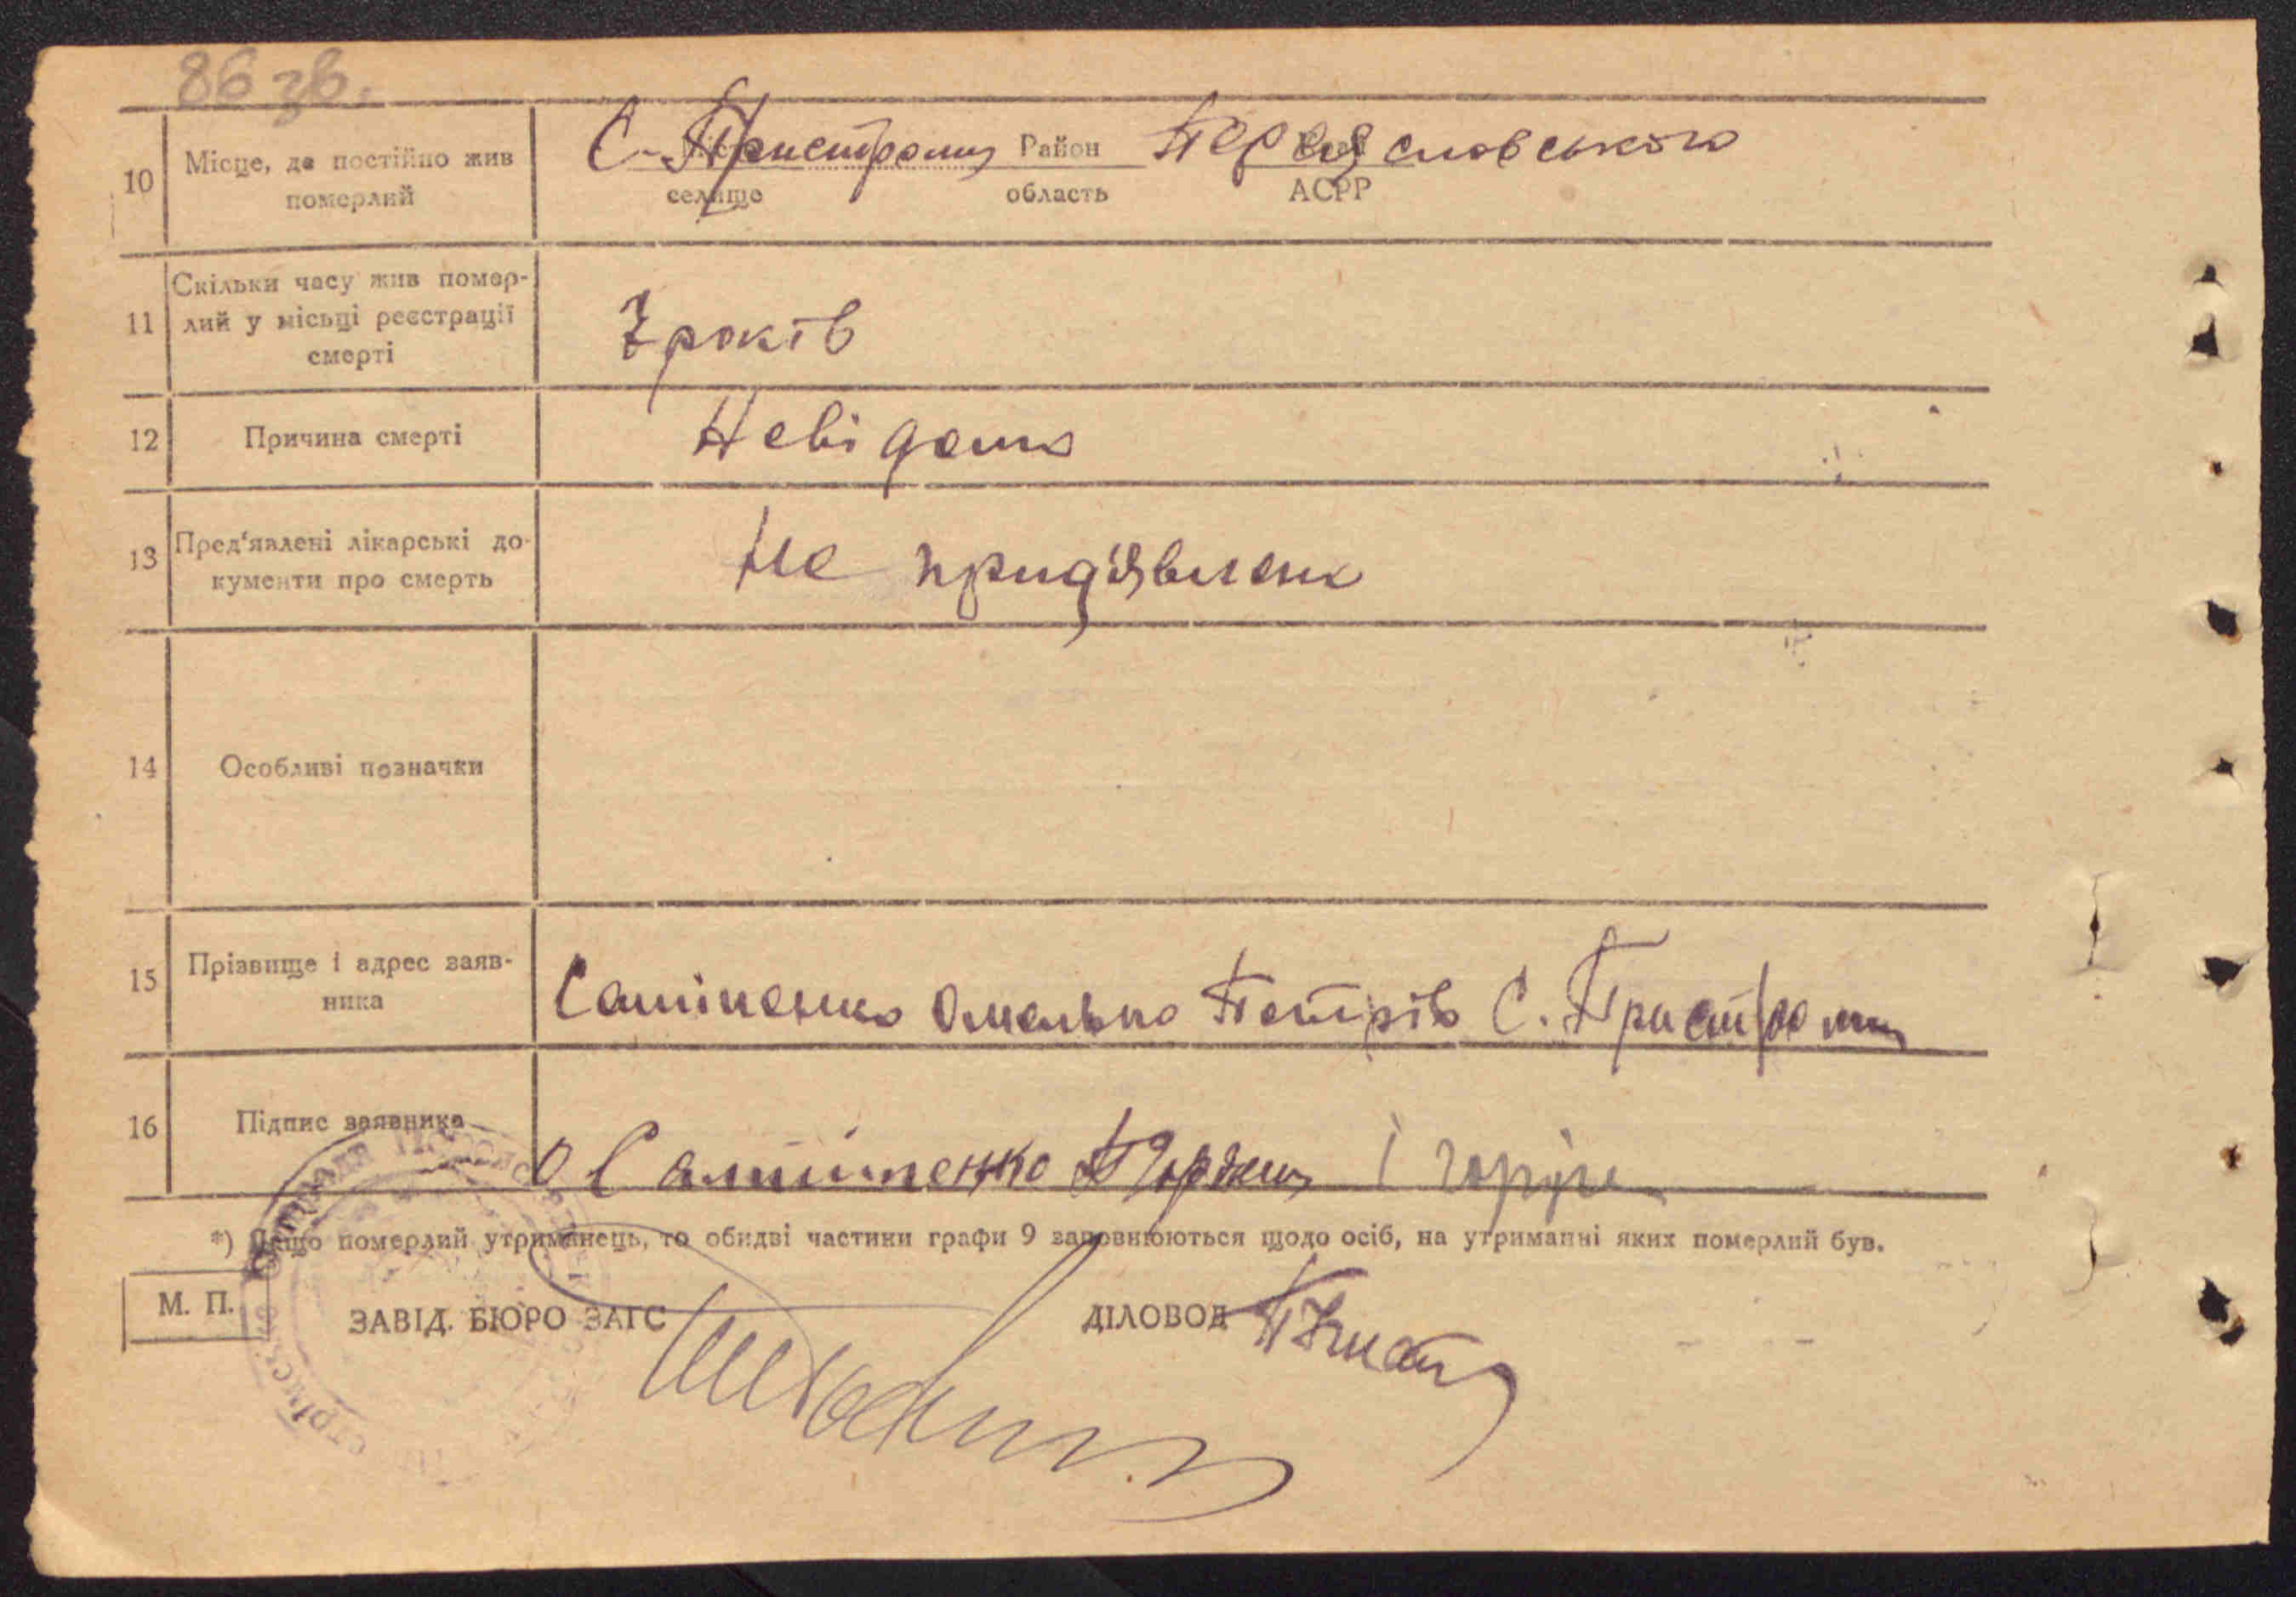 86 зв.
10 Місце, де постійно жив померлий
С. Пристроми Район Переяславського
селище область АСРР
11 Скільки часу жив помер-
лий у місьці реєстрації
смерті
7 років
12 Причина смерті Невідома
13 Пред'явлені лікарські до-
кументи про смерть
Не прид'явлени
14 Особливі позначки
15 Прізвище і адрес заяв-
ника
Омелько Петрів С. Пристроми
16 Підпис заявника
*) Якщо померлий утриманець, то обидві частини графи 9 заповнюються щодо осіб, на утриманні яких померлий був.
М. П. ЗАВІД. БЮРО ЗАГС ДІЛОВОД